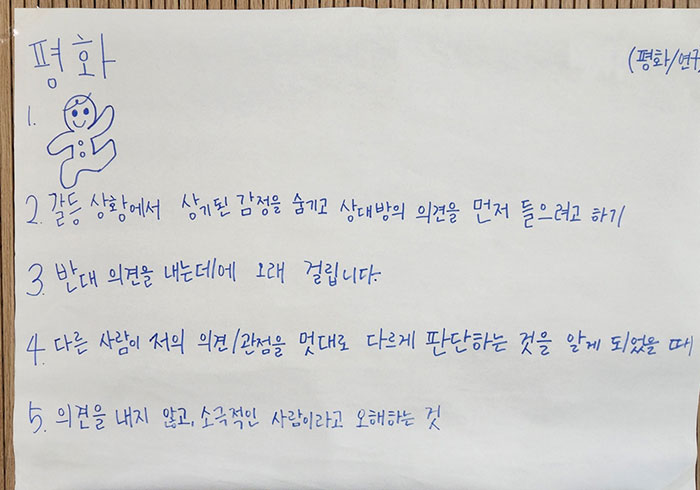 평화
(평화/연구
1.
2. 갈등 상황에서 상기된 감정을 숨기고 상대방의 의견을 먼저 들으려고 하기
3. 반대 의견을 내는데에 오래 걸립니다.
4. 다른 사람이 저의 의견/관점을 멋대로 다르게 판단하는 것을 알게 되었을 때
5. 의견을 내지 않고, 소극적인 사람이라고 오해하는 것